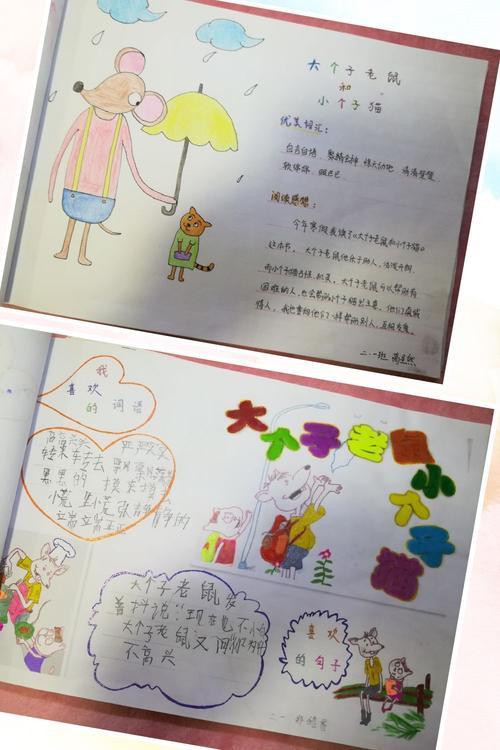 大个子老鼠
和
小个子猫
优美词汇:
自言自语 聚精会神 惊天动地 清清楚楚
软绵绵 眼巴巴
阅读感想:
今年寒假我读了《大个子老鼠和小个子猫》
这本书。大个子老鼠他乐于助人,活泼开朗,
而小个子猫
大个子老鼠可以帮助有
困难的人,也会帮助小个子猫出主意。他们真诚
待人。我也要和他们一样帮助别人,互相友爱。
二.一班
我
喜欢
的词语
高高兴兴 严严实实
转来转去
黑黑的 摸来摸去
小小慌 张静静的
大个子老鼠
着抖说:“现在也不小
大个子老鼠又
不高兴
大个子老鼠小个子猫
喜欢
的句子
二.一